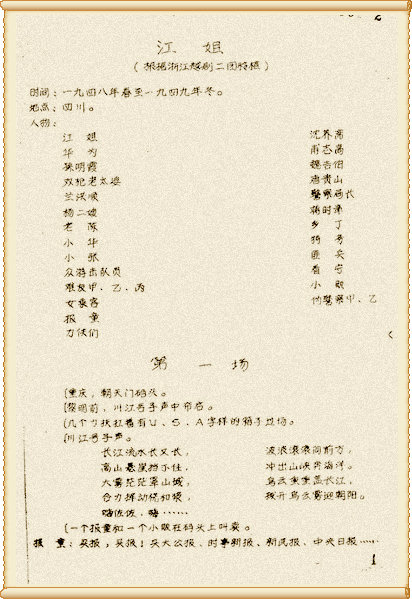 江 姐
（根据浙江越剧二团移植）
时间：一九四八年春至一九四九年冬。
地点：四川。
人物：
江 姐 沈养斋
华 为 甫志高
孙明霞 魏吉伯
双枪老太婆 唐贵山
兰洪顺 警察局长
杨二嫂
老 陈 乡 丁
小 华 特 务
小 张 匪 兵
众游击队员 看 守
难友甲、乙、丙 小 贩
女乘客 伪警察甲、乙
报 童
力伕们
第 一 场
〔重庆，朝天门码头。
〔黎明前，川江号子声中启幕。
〔几个力伕扛着有U、S、A字样的箱子过场。
〔川江号子声。
长江流水长又长， 波浪滚滚向前方，
高山悬崖挡不住， 冲出山峡奔海洋。
大雾茫茫罩山城， 乌云重重盖长江，
合力挥动桡和桨， 拨开乌云迎朝阳。
嗨佐佐，嗨……
〔一个报童和一个小贩在码头上叫卖。
报 童：买报，买报！买大公报、时事新报、新民报、中央日报……
1